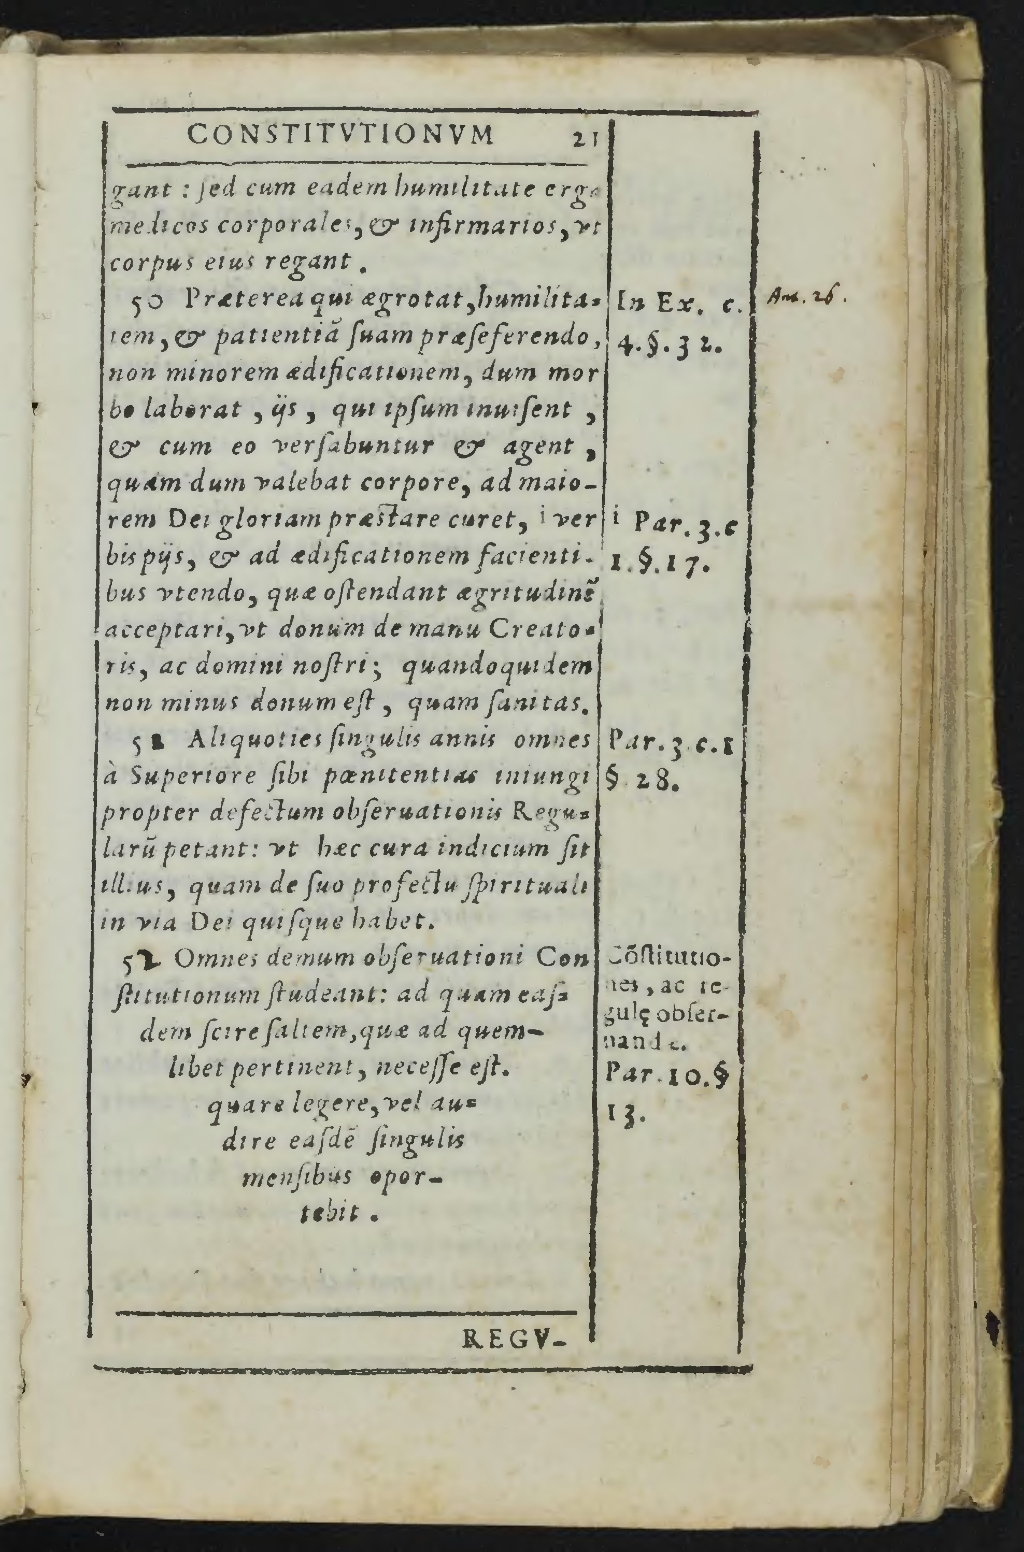 CONSTITVTIONVM 21
gant : ſed cum eadem humilitate erga
medicos corporales, & infirmarios, vt
corpus eius regant .
50 Præterea qui ægrotat, humilita-
tem, & patientiã ſuam præſeferendo,
non minorem ædificationem, dum mor
bo laborat , ijs , qui ipſum inuiſent ,
& cum eo verſabuntur & agent ,
quàm dum valebat corpore, ad maio-
rem Dei gloriam præſtare curet, i ver
bis pijs, & ad ædificationem facienti-
bus vtendo, quæ oſtendant ægritudinẽ
acceptari, vt donum de manu Creato-
ris, ac domini noſtri; quandoquidem
non minus donum eſt , quam ſanitas.
51 Aliquoties ſingulis annis omnes
à Superiore ſibi pœnitentias iniungi
propter defectum obſeruationis Regu-
larũ petant: vt hæc cura indicium ſit
illius, quam de ſuo profectu ſpirituali
in via Dei quiſque habet.
52 Omnes demum obſeruationi Con
ſtitutionum ſtudeant: ad quam eaſ-
dem ſcire ſaltem, quæ ad quem-
libet pertinent, neceſſe eſt.
quare legere, vel au-
dire eaſdẽ ſingulis
menſibus opor-
tebit .
REGV-
In Ex. c.
4.§.32.
i Par.3.c
1.§.17.
Par.3.c.1
§ 28.
Cõſtitutio-
nes, ac re-
gulę obſer-
uandę.
Par.10.§
13.
26.